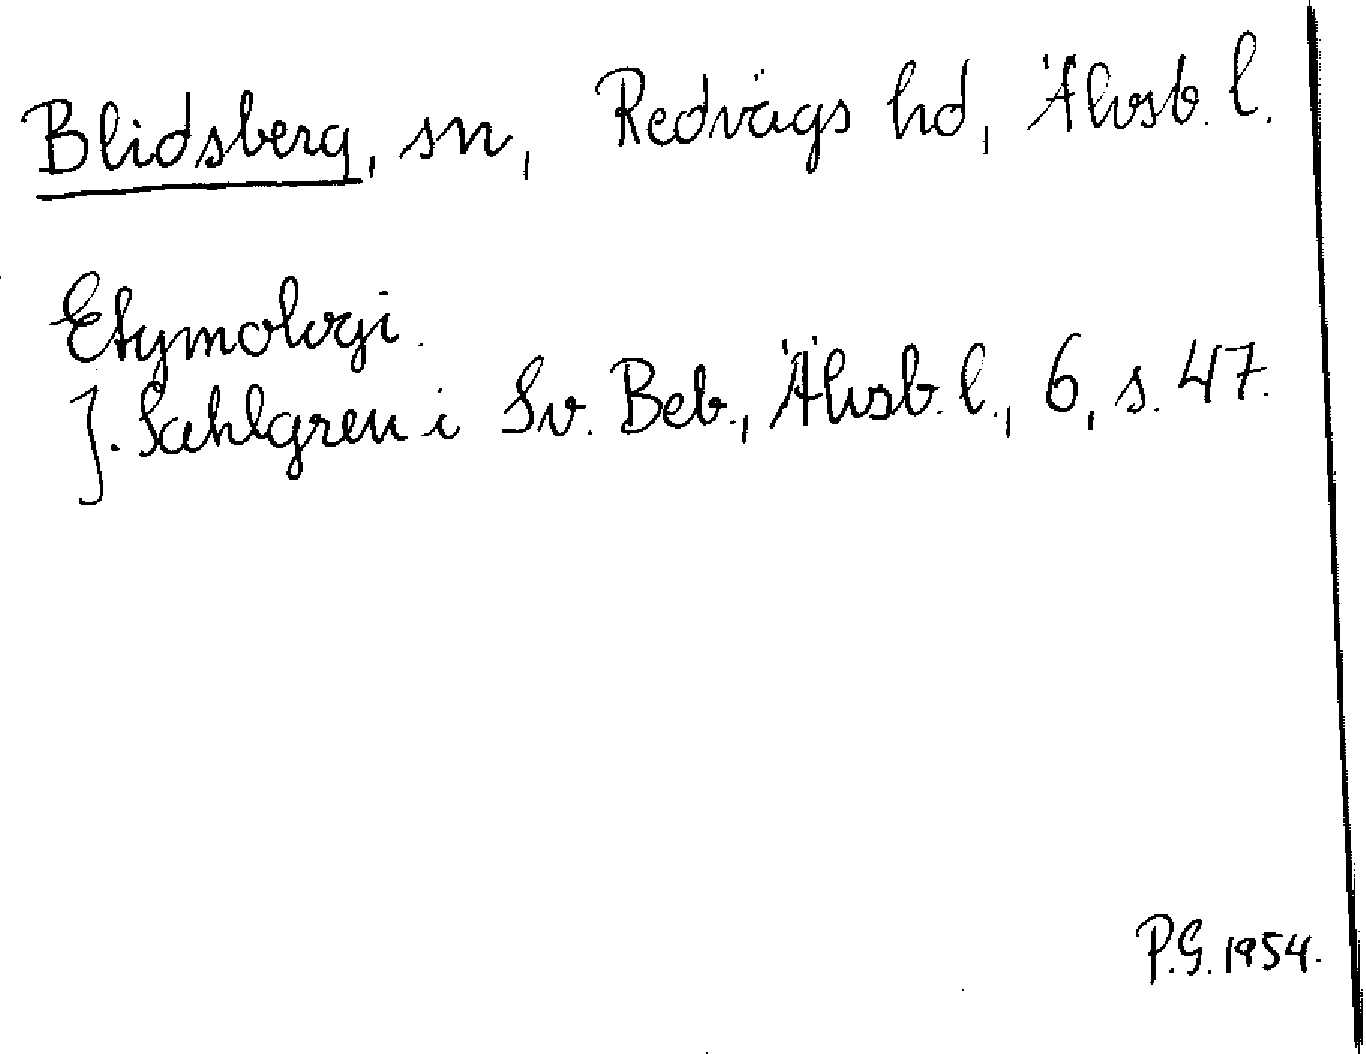 Blidsberg, sn, Redvägs hd, Älvsb. l.
Etymologi.
J. Sahlgren i Sv. Beb., Älvsb. l., 6, s. 47.
P.G. 1954.